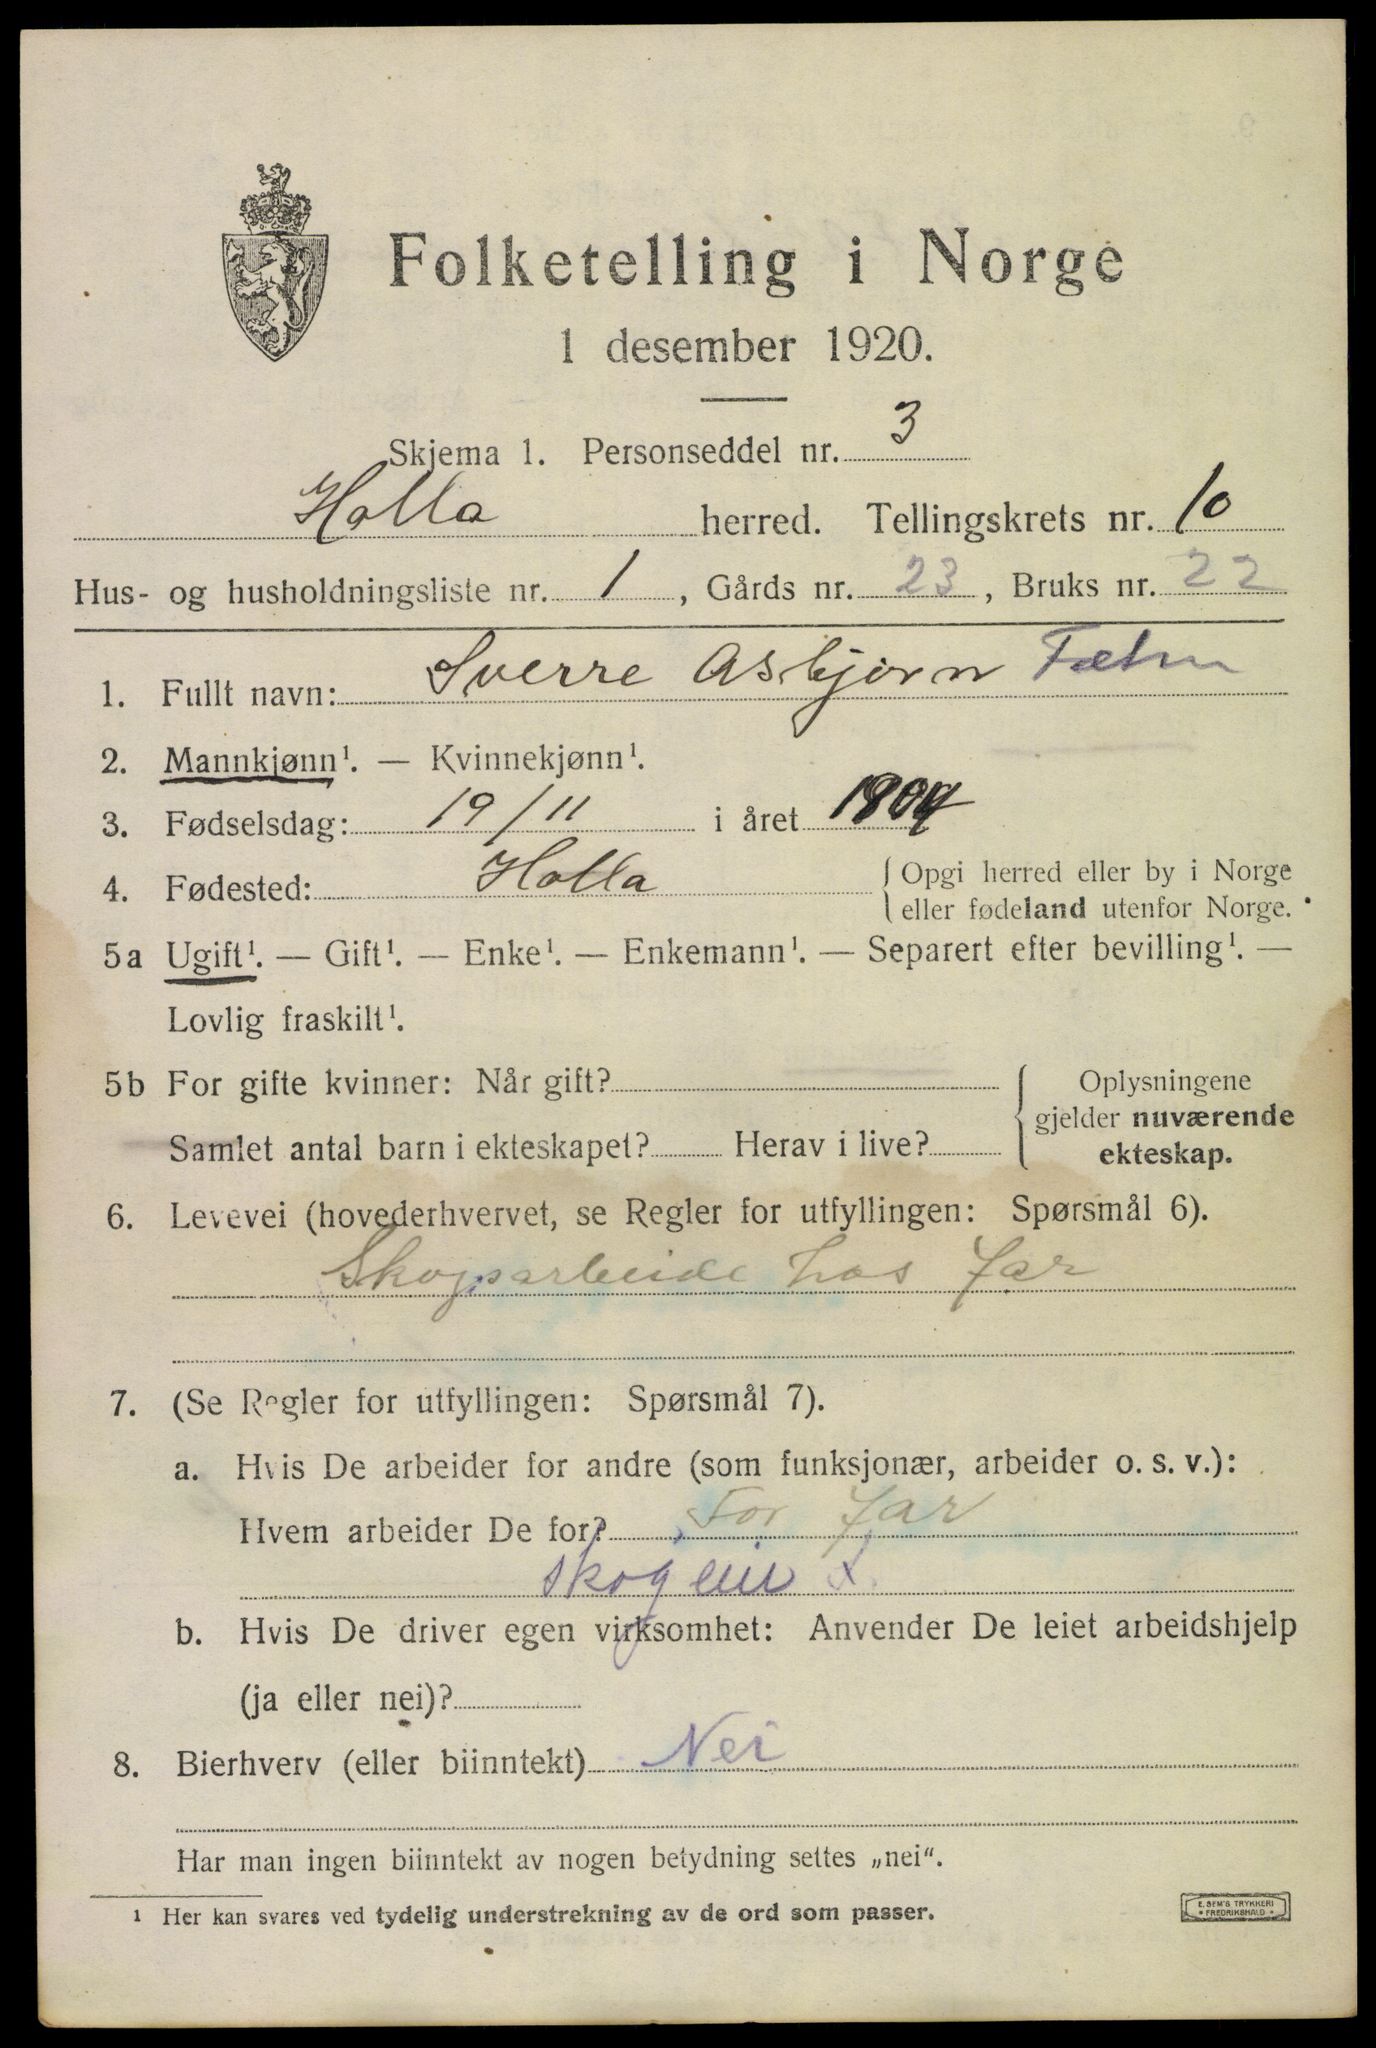 Folketelling i Norge
1 desember 1920.
Skjema 1. Personseddel nr. 3
Holla herred. Tellingskrets nr. 10
Hus- og husholdningsliste nr. 1, Gårds nr. 23, Bruks nr. 22
1. Fullt navn: Sverre Asbjørn
2. Mannkjønn¹. — Kvinnekjønn¹.
3. Fødselsdag: 19/11 i året
4. Fødested: Holla { Opgi herred eller by i Norge
eller fødeland utenfor Norge.
5a Ugift¹. — Gift¹. — Enke¹. — Enkemann¹. — Separert efter bevilling¹. —
Lovlig fraskilt¹.
5b For gifte kvinner: Når gift?
Samlet antal barn i ekteskapet? Herav i live?
{ Oplysningene
gjelder nuværende
ekteskap.
6. Levevei (hovederhvervet, se Regler for utfyllingen: Spørsmål 6).
Skogsarbeide hos far
7. (Se Regler for utfyllingen: Spørsmål 7).
a. Hvis De arbeider for andre (som funksjonær, arbeider o. s. v.):
Hvem arbeider De for? For far
skogeier
b. Hvis De driver egen virksomhet: Anvender De leiet arbeidshjelp
(ja eller nei)?
8. Bierhverv (eller biinntekt) Nei
Har man ingen biinntekt av nogen betydning settes „nei“.
1 Her kan svares ved tydelig understrekning av de ord som passer.
E. SEM'S TRYKKERI
• FREDRIKSHALD •